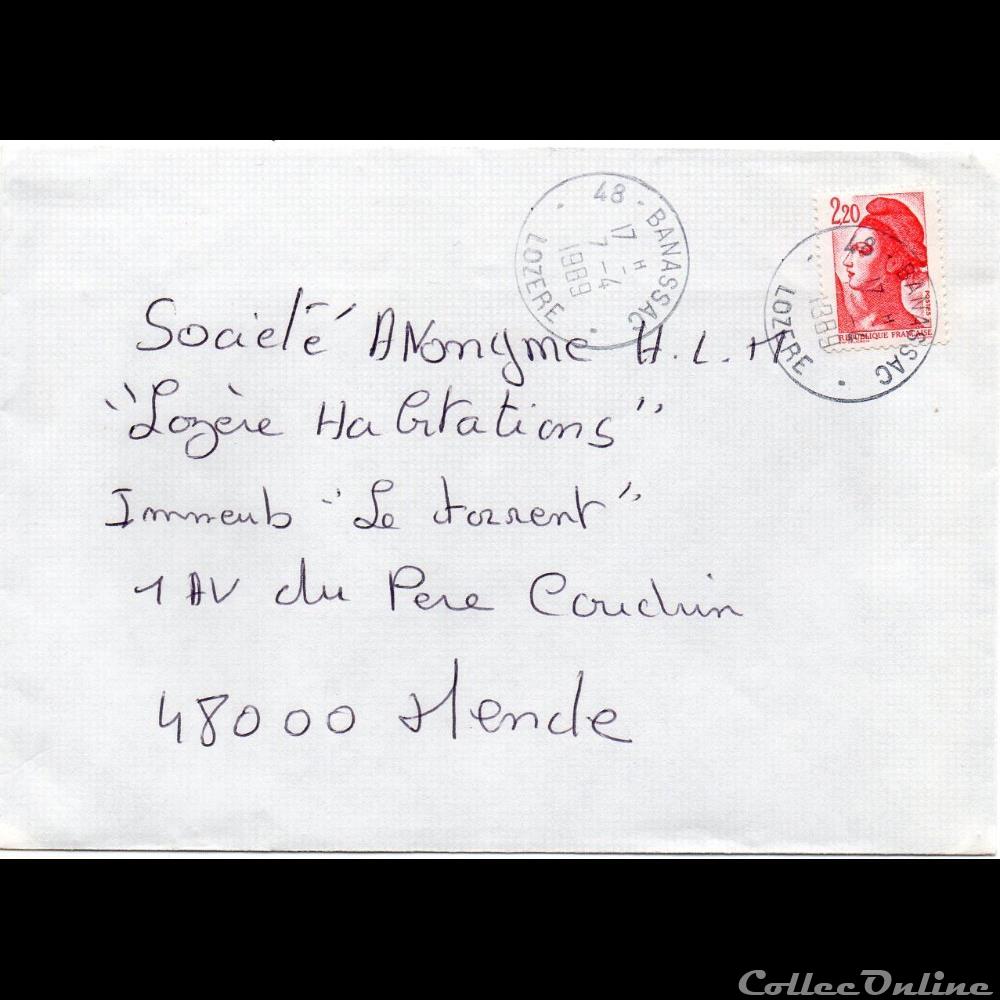 48 - BANASSAC
17 H
7 - 4
1989
LOZERE
2,20
POSTES
REPUBLIQUE FRANÇAISE
48 - BANASSAC
17 H
1989
LOZERE
Societé Anonyme H.L.M
"Lozère Habitations"
Immeub "Le torrent"
1 AV du Pere Coudrin
48000 Mende
CollecOnline